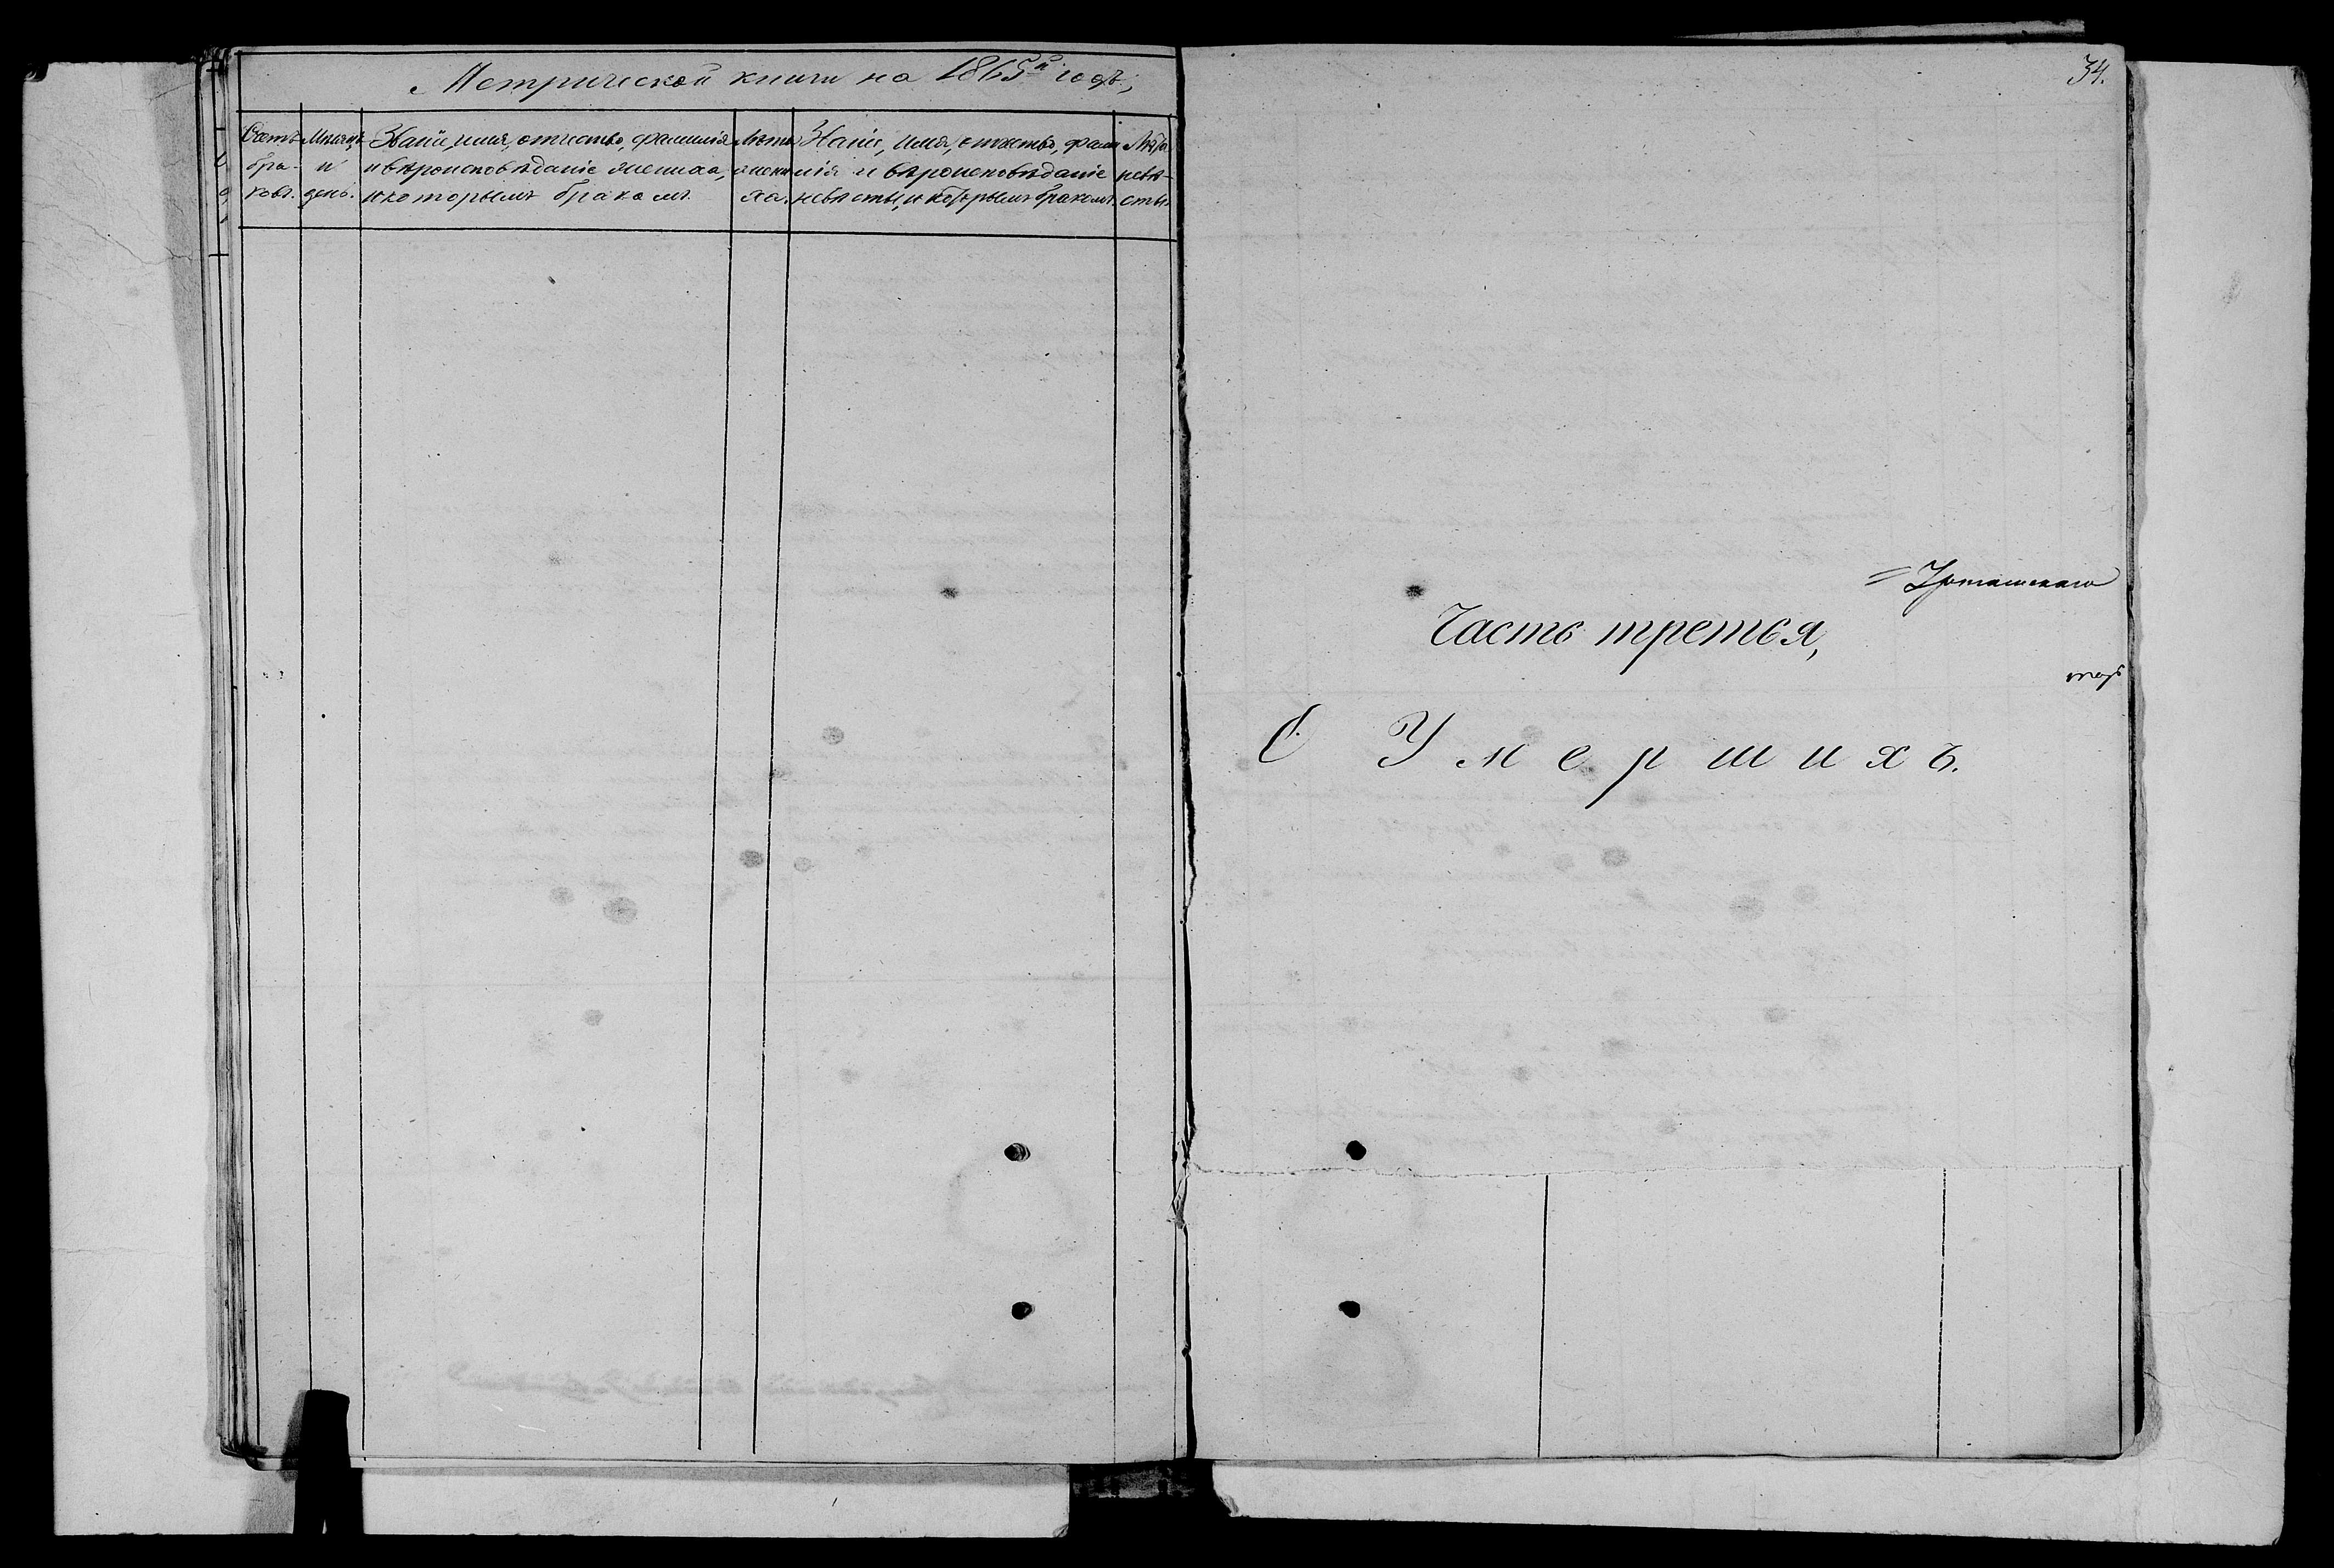 Метрической книги на 1865й годъ,
Счетъ бра- ковъ.
Мѣсяцъ и день.
Званiе, имя, отчество, фамилiя
и вѣроисповѣданiе жениха,
и которымъ бракомъ.
Лѣта жени ха.
Званiе, имя, отчество, фами
лiя и вѣроисповѣданiе
невѣсты, и которымъ бракомъ.
Лѣта невѣ- сты.
34.
Часть третья,
О Умершихъ.